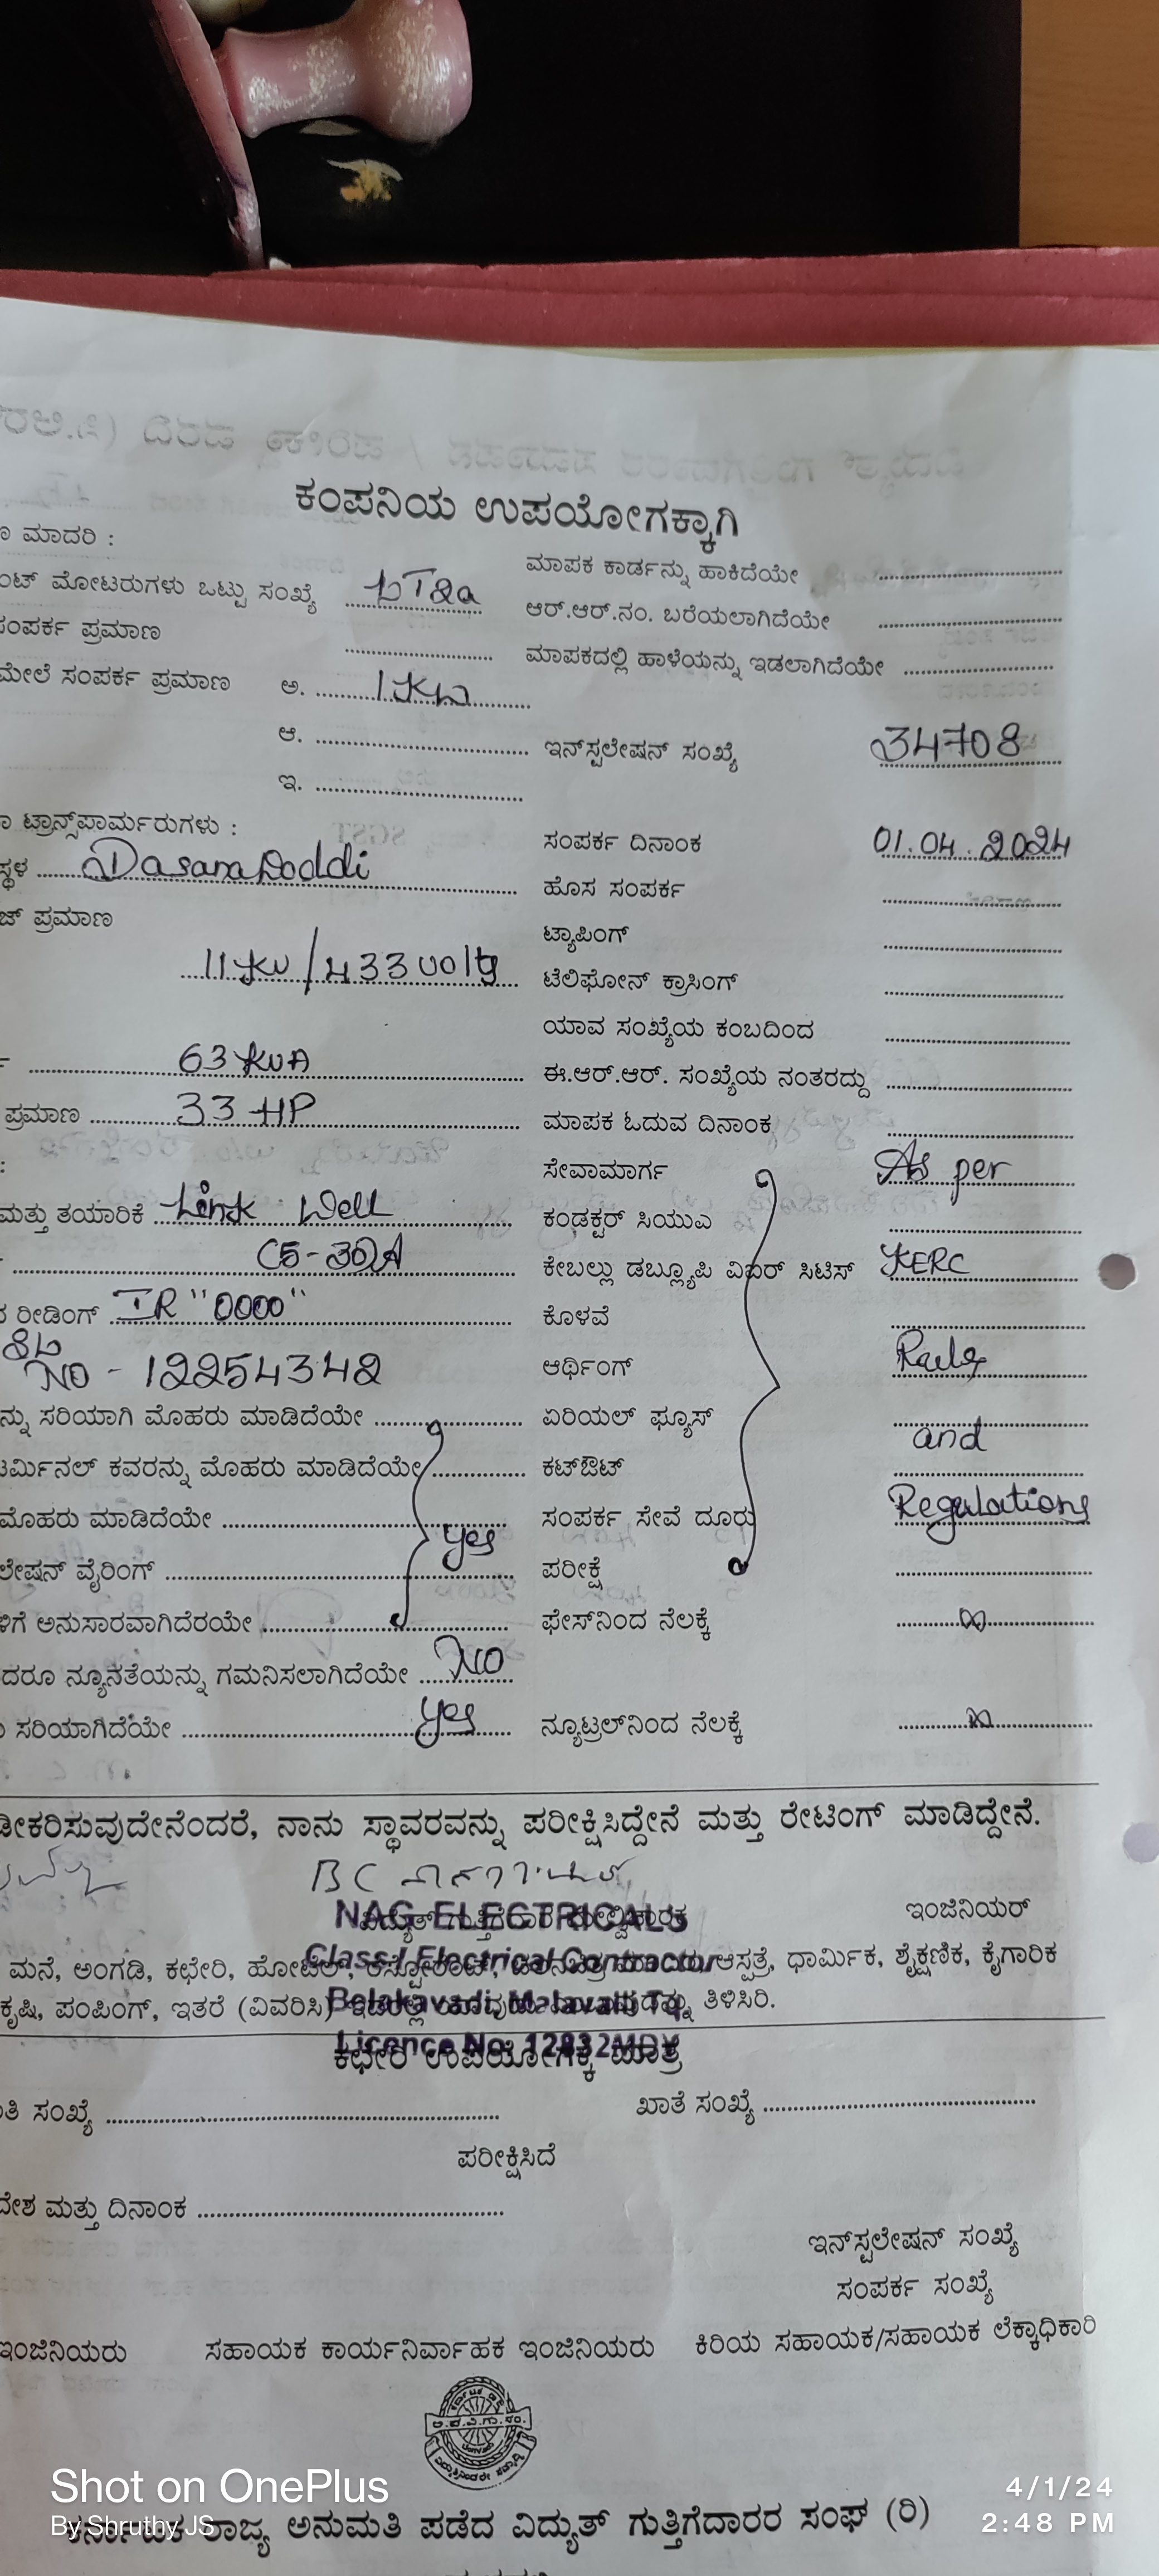 ಕಂಪನಿಯ ಉಪಯೋಗಕ್ಕಾಗಿ
ಮಾದರಿ :
ಮಾಪಕ ಕಾರ್ಡನ್ನು ಹಾಕಿದೆಯೇ
ಮೋಟರುಗಳು ಒಟ್ಟು ಸಂಖ್ಯೆ LT2a
ಆರ್.ಆರ್.ನಂ. ಬರೆಯಲಾಗಿದೆಯೇ
ಸಂಪರ್ಕ ಪ್ರಮಾಣ
ಮಾಪಕದಲ್ಲಿ ಹಾಳೆಯನ್ನು ಇಡಲಾಗಿದೆಯೇ
ಮೇಲೆ ಸಂಪರ್ಕ ಪ್ರಮಾಣ ಅ. 1KW
ಆ.
ಇನ್‌ಸ್ಟಲೇಷನ್ ಸಂಖ್ಯೆ 34708
ಇ.
ಟ್ರಾನ್ಸ್‌ಪಾರ್ಮರುಗಳು :
ಸಂಪರ್ಕ ದಿನಾಂಕ 01.04.2024
ಸ್ಥಳ DasanaDoddi
ಹೊಸ ಸಂಪರ್ಕ
ಪ್ರಮಾಣ
ಟ್ಯಾಪಿಂಗ್
11KV/433 volts
ಟೆಲಿಫೋನ್ ಕ್ರಾಸಿಂಗ್
ಯಾವ ಸಂಖ್ಯೆಯ ಕಂಬದಿಂದ
63 KVA
ಈ.ಆರ್.ಆರ್. ಸಂಖ್ಯೆಯ ನಂತರದ್ದು
ಪ್ರಮಾಣ 33 HP
ಮಾಪಕ ಓದುವ ದಿನಾಂಕ
ಸೇವಾಮಾರ್ಗ As per
ಮತ್ತು ತಯಾರಿಕೆ Link Well
ಕಂಡಕ್ಟರ್ ಸಿಯುಎ
C5-30A
ಕೇಬಲ್ಲು ಡಬ್ಲ್ಯೂಪಿ ವಿಐರ್ ಸಿಟಿಸ್ KERC
ರೀಡಿಂಗ್ IR "0000"
ಕೊಳವೆ
SL
NO - 12254342
ಆರ್ಥಿಂಗ್ Rules
ನ್ನು ಸರಿಯಾಗಿ ಮೊಹರು ಮಾಡಿದೆಯೇ
ಏರಿಯಲ್ ಫ್ಯೂಸ್
and
ಟರ್ಮಿನಲ್ ಕವರನ್ನು ಮೊಹರು ಮಾಡಿದೆಯೇ
ಕಟ್‌ಔಟ್
ಮೊಹರು ಮಾಡಿದೆಯೇ yes
ಸಂಪರ್ಕ ಸೇವೆ ದೂರು Regulations
ಲೇಷನ್ ವೈರಿಂಗ್
ಪರೀಕ್ಷೆ
ಳಿಗೆ ಅನುಸಾರವಾಗಿದೆರಯೇ
ಫೇಸ್‌ನಿಂದ ನೆಲಕ್ಕೆ
ದರೂ ನ್ಯೂನತೆಯನ್ನು ಗಮನಿಸಲಾಗಿದೆಯೇ NO
ಸರಿಯಾಗಿದೆಯೇ yes
ನ್ಯೂಟ್ರಲ್‌ನಿಂದ ನೆಲಕ್ಕೆ
ಡೀಕರಿಸುವುದೇನೆಂದರೆ, ನಾನು ಸ್ಥಾವರವನ್ನು ಪರೀಕ್ಷಿಸಿದ್ದೇನೆ ಮತ್ತು ರೇಟಿಂಗ್ ಮಾಡಿದ್ದೇನೆ.
NAG ELECTRICALS
ಇಂಜಿನಿಯರ್
Class-I Electrical Contractor
ಮನೆ, ಅಂಗಡಿ, ಕಛೇರಿ, ಹೋಟೆಲ್, ಆಸ್ಪತ್ರೆ, ಧಾರ್ಮಿಕ, ಶೈಕ್ಷಣಿಕ, ಕೈಗಾರಿಕ
Belakavadi, Malavalli Tq.
ಕೃಷಿ, ಪಂಪಿಂಗ್, ಇತರೆ (ವಿವರಿಸಿ) ತಿಳಿಸಿರಿ.
Licence No. 12832MDY
ಕಛೇರಿ ಉಪಯೋಗಕ್ಕೆ ಮಾತ್ರ
ಸಂಖ್ಯೆ
ಖಾತೆ ಸಂಖ್ಯೆ
ಪರೀಕ್ಷಿಸಿದೆ
ದೇಶ ಮತ್ತು ದಿನಾಂಕ
ಇನ್‌ಸ್ಟಲೇಷನ್ ಸಂಖ್ಯೆ
ಸಂಪರ್ಕ ಸಂಖ್ಯೆ
ಇಂಜಿನಿಯರು ಸಹಾಯಕ ಕಾರ್ಯನಿರ್ವಾಹಕ ಇಂಜಿನಿಯರು ಕಿರಿಯ ಸಹಾಯಕ/ಸಹಾಯಕ ಲೆಕ್ಕಾಧಿಕಾರಿ
ಕರ್ನಾಟಕ ರಾಜ್ಯ ಅನುಮತಿ ಪಡೆದ ವಿದ್ಯುತ್ ಗುತ್ತಿಗೆದಾರರ ಸಂಘ (ರಿ)
Shot on OnePlus
By Shruthy JS
4/1/24
2:48 PM